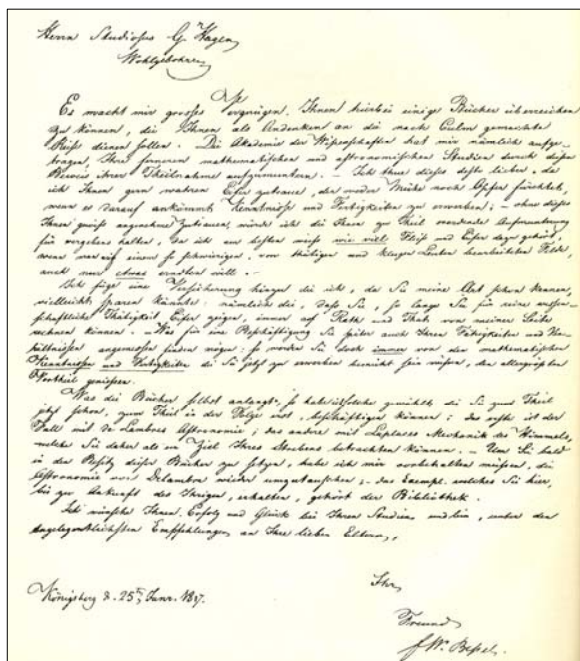 Herrn Studiosus G. Hagen
Wohlgebohren
Es macht mir grosses Vergnügen, Ihnen hierbei einige Bücher überreichen
zu können, die Ihnen als Andenken an die nach Culm gemachte
Reise dienen sollen. – Die Akademie der Wissenschaften hat mir nämlich aufge-
tragen, Ihre ferneren mathematischen und astronomischen Studien durch diesen
Beweis ihrer Theilnahme aufzumuntern. – Ich thue dieses desto lieber, da
ich Ihnen gern wahren Eifer zutraue, der weder Mühe noch Opfer fürchtet,
wenn es darauf ankömmt Kenntnisse und Fertigkeiten zu erwerben; – ohne dieses
Ihnen gewiss angenehme Zutrauen, würde ich die Ihnen zu Theil werdende Aufmunterung
für vergebens halten, da ich am besten weiss wie viel Fleiss und Eifer dazu gehört,
wenn man auf einem so schwierigen, von thätigen und klugen Leuten bearbeiteten Felde,
auch nur etwas erndten will. –
Ich füge eine Versicherung hinzu die ich, da Sie meine Art schon kennen,
vielleicht sparen könnte: nämlich die, dass Sie, so lange Sie für reine wissen-
schaftliche Thätigkeit Eifer zeigen, immer auf Rath und That von meiner Seite
rechnen können. – Was für eine Beschäftigung Sie später auch Ihren Fähigkeiten und Ver-
hältnissen angemessen finden mögen, so werden Sie doch immer von den mathematischen
Kenntnissen und Fertigkeiten die Sie jetzt zu erwerben bemüht sein müssen, den allergrößten
Vortheil geniessen.
Was die Bücher selbst anlangt, so habe ich solche gewählt, die Sie zum Theil
jetzt schon, zum Theil in der Folge erst, beschäftigen können; das erste ist der
Fall mit de Lambres Astronomie; das andere mit Laplaces Mechanik des Himmels,
welche Sie daher als ein Ziel Ihres Strebens betrachten können. – Um Sie bald
in den Besitz dieser Bücher zu setzen, habe ich mir vorbehalten müssen, die
Astronomie von Delambre wieder umzutauschen; – das Exempl. welches Sie hier,
bis zur Ankunft des Ihrigen, erhalten, gehört der Bibliothek.
Ich wünsche Ihnen Erfolg und Glück bei Ihren Studien und bin, unter den
angelegentlichsten Empfehlungen an Ihre lieben Eltern,
Ihr
Königsberg d. 25ten Janr. 1817.
Freund
F. W. Bessel.